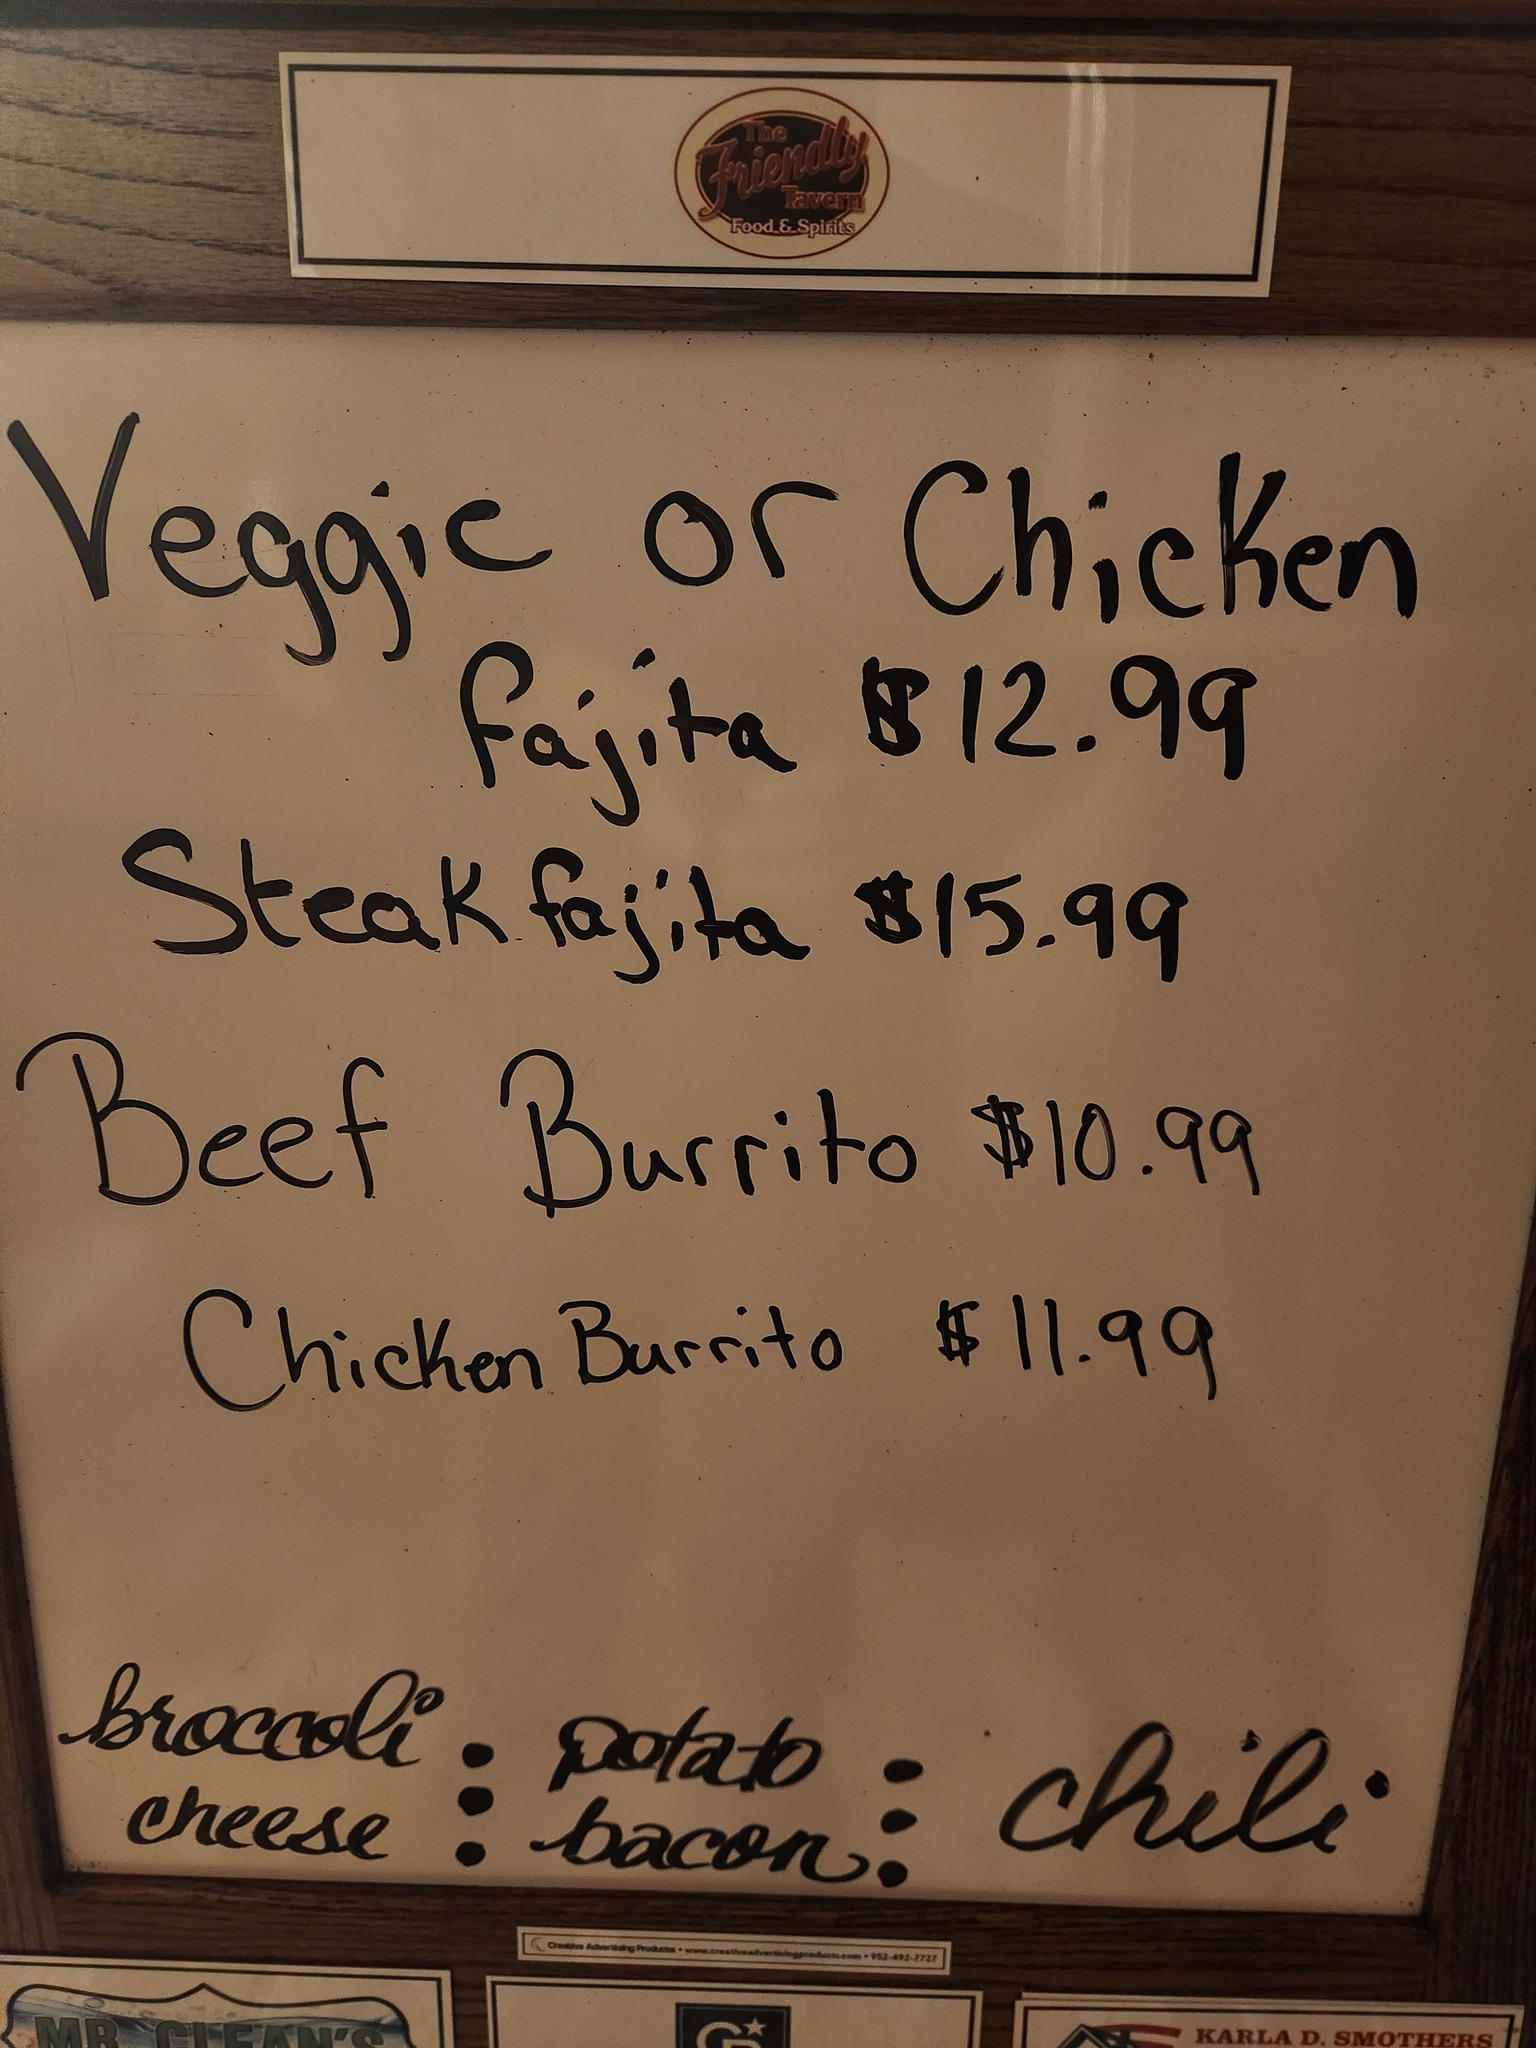 The
Friendly
Tavern
Food & Spirits
Veggie or Chicken
fajita $12.99
Steak fajita $15.99
Beef Burrito $10.99
Chicken Burrito $11.99
broccoli
cheese
potato
bacon
chili
Creative Advertising Products • www.creativeadvertisingproducts.com • 952-492-7727
MR. CLEAN'S
KARLA D. SMOTHERS